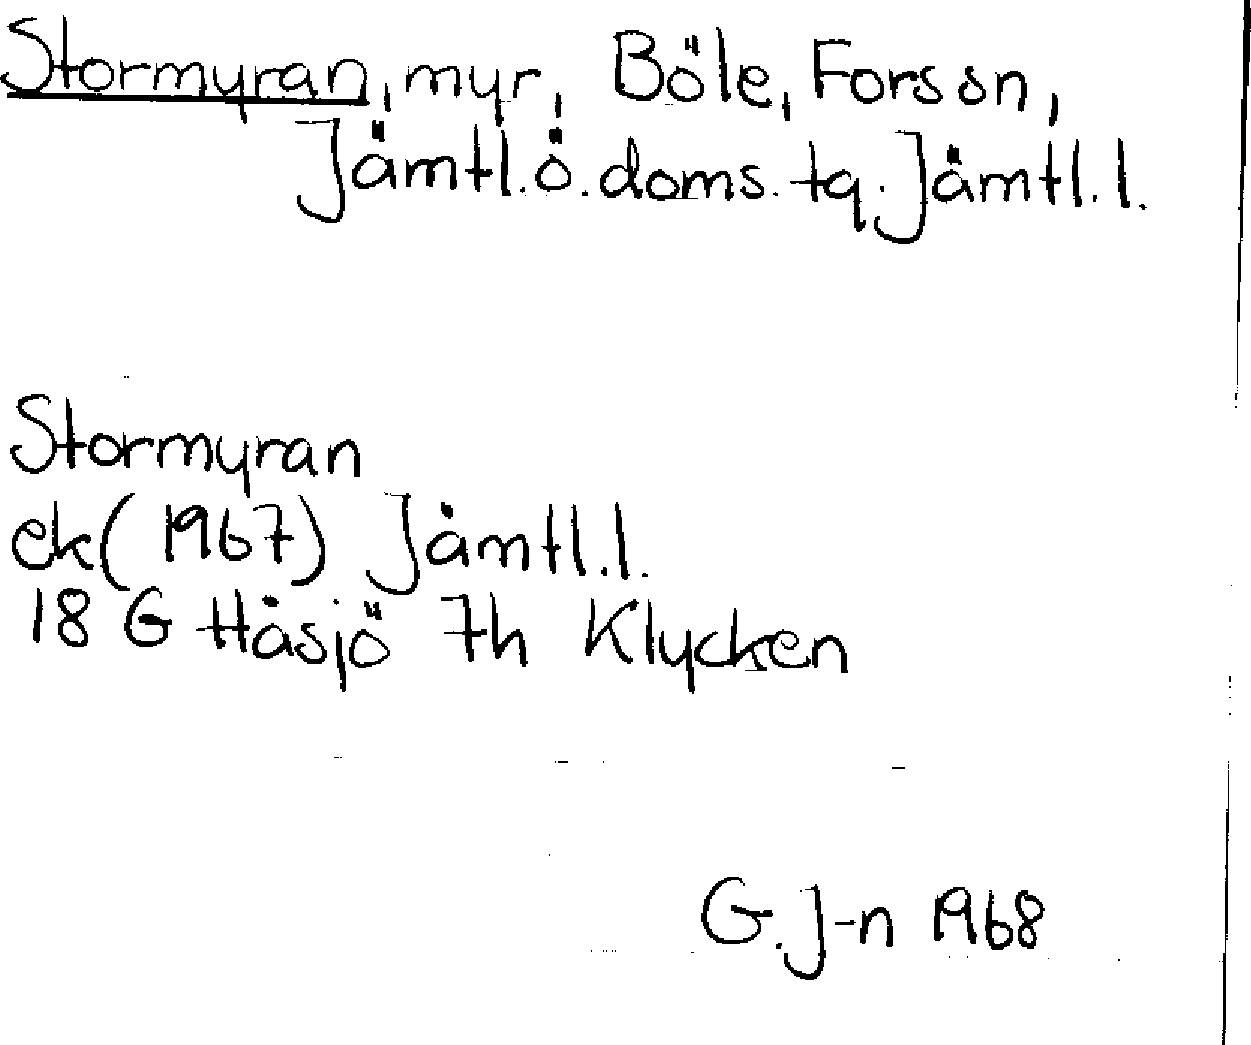 Stormyran, myr, Böle, Fors sn,
Jämtl.ö.doms.tg.Jämtl.l.
Stormyran
ek(1967) Jämtl.l.
18 G Håsjö 7h Klycken
G.J-n 1968